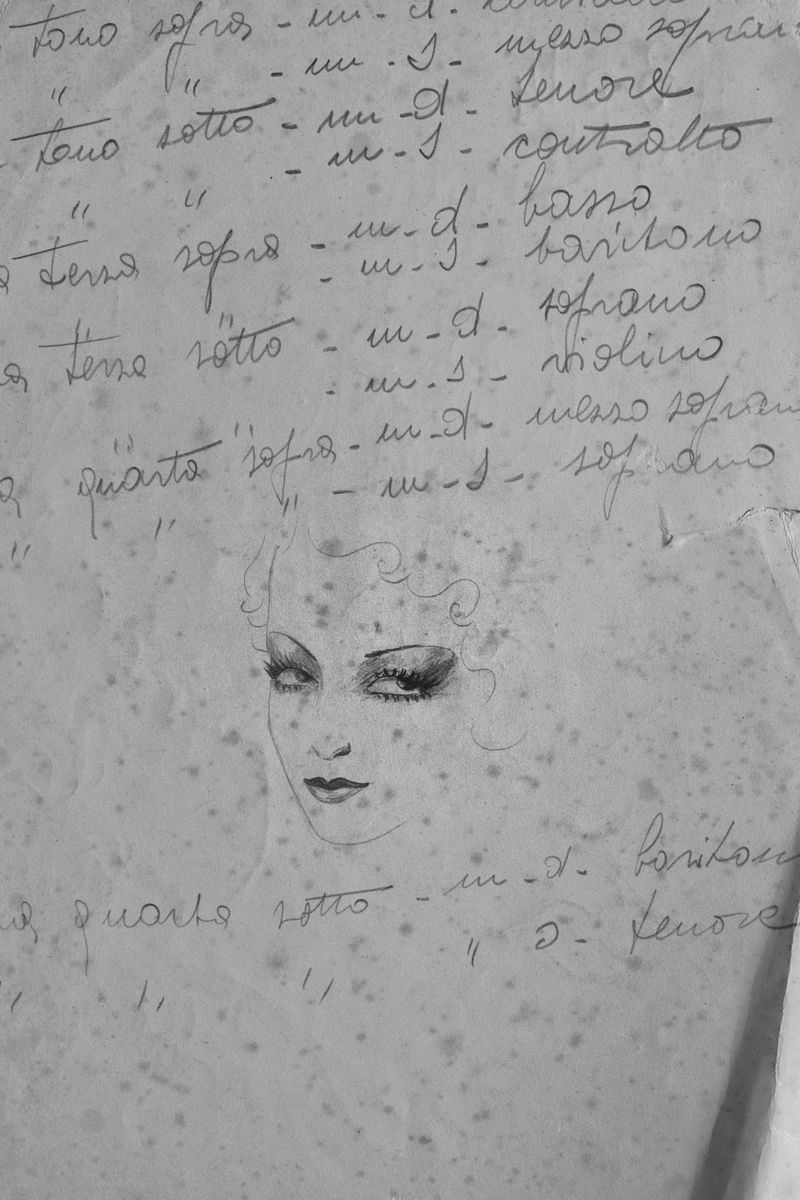 tono sopra - m - d -
" " - m - s - mezzo sopran
tono sotto - m - d - tenore
" " - m - s - contralto
terza sopra - m - d - basso
" " - m - s - baritono
terza sotto - m - d - soprano
" " - m - s - violino
quarta sopra - m - d - mezzo sopran
" " " - m - s - soprano
quarta sotto - m - d - bariton
" " " " s - tenore